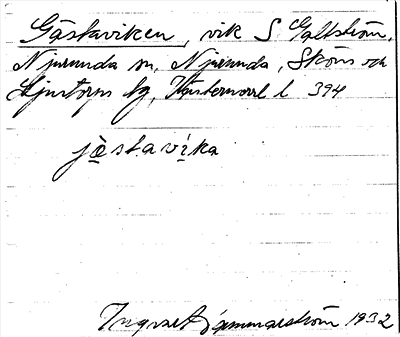 Gåstaviken, vik S Galtström,
Njurunda sn, Njurunda, Sköns och
Ljustorps tg, Västernorrl l 394
jɵ̀sta vìka
Ingvar Hjammarström 1932